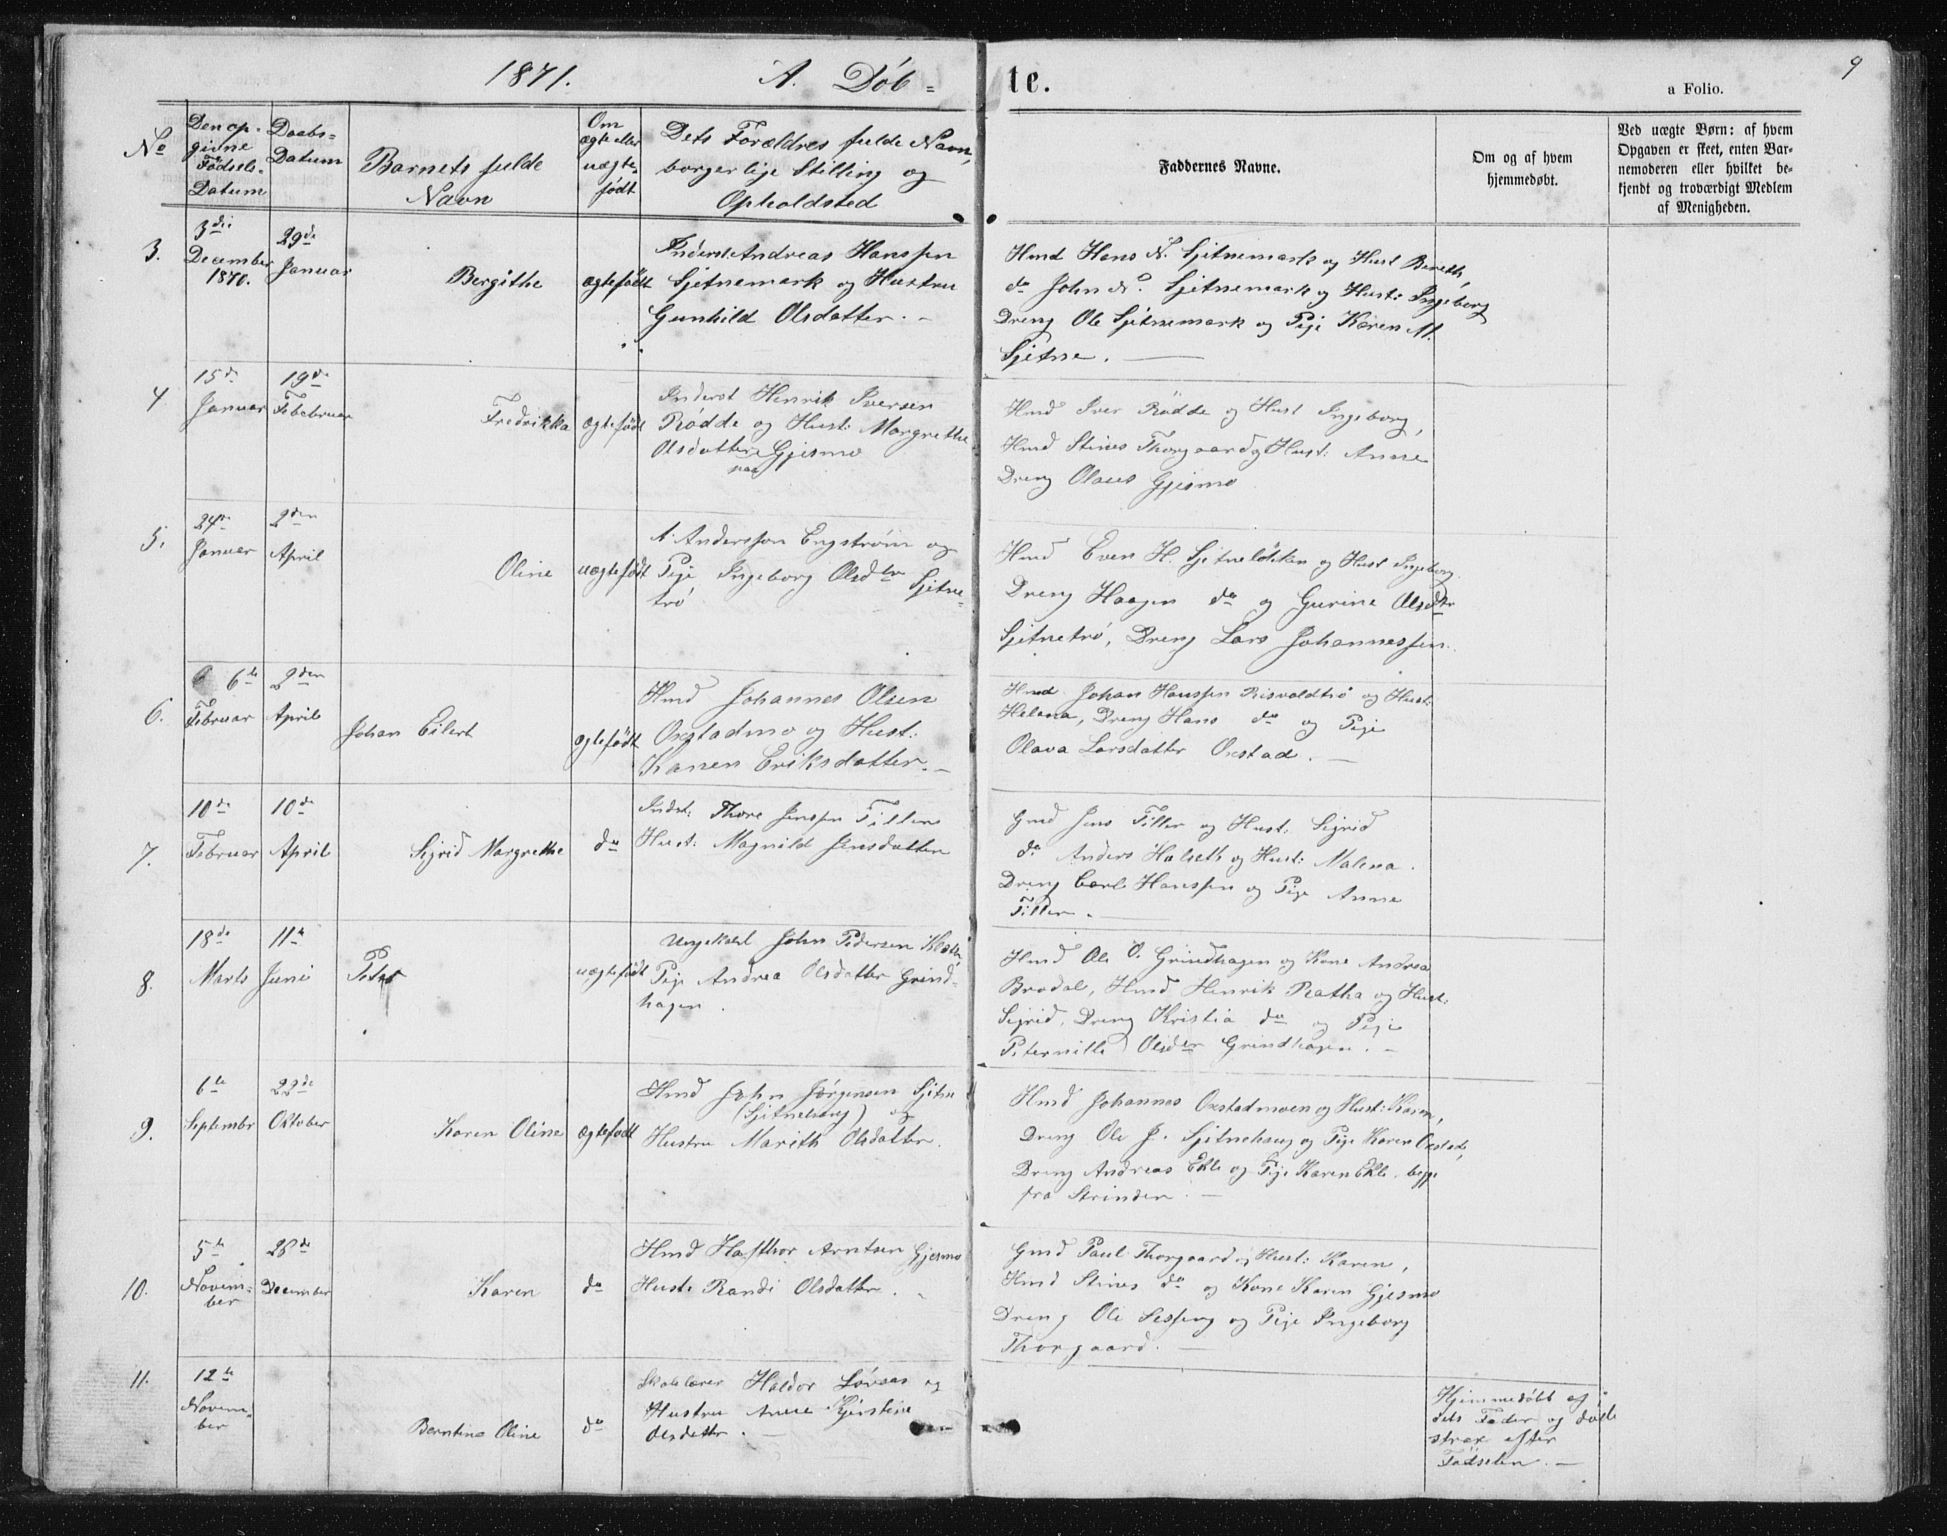 1871. A. Døb=
te. a Folio. 9
No
Den op-
givne
Fødsels-
Datum
Daabs=
Datum
Barnets fulde
Navn
Om
ægte eller
uægte-
født
Dets Forældres fulde Navn,
borgerlige Stilling og
Opholdsted
Faddernes Navne.
Om og af hvem
hjemmedøbt.
Ved uægte Børn: af hvem
Opgaven er skeet, enten Bar-
nemoderen eller hvilket be-
kjendt og troværdigt Medlem
af Menigheden.
3.
3die
December
1870.
29de
Januar
Bergithe
ægtefødt
Inderst Andreas Hanssen
Sjetnemark og Hustru
Gunhild Olsdatter.-
Hmd Hans N. Sjetnemark og Hust Bereth,
do John N. Sjetnemark og Hust: Ingeborg
Dreng Ole Sjetnemark og Pige Karen M.
Sjetne.
4
15de
Januar
19de
Februar
Fredrikka
ægtefødt
Inderst Henrik Iversen
Rødde og Hust: Margrethe
Olsdatter Gjesmo
Hmd Iver Rødde og Hust Ingeborg,
Hmd Stines Thorgaard og Hust: Anne
Dreng Olaus Gjesmo
5.
24de
Januar
2den
April
Oline
uægtefødt
A. Anderssen Engstrøm og
Pige Ingeborg Olsdtr Sjetne=
trø
Hmd Even H. Sjetneløkken og Hust Ingeborg
Dreng Haagen do og Gurine Olsdtr
Sjetnetrø, Dreng Lars Johannessen.
6.
6te
Februar
2den
April
Johan Eilert
ægtefødt
Hmd Johannes Olsen
Oxstadmo og Hust:
Karen Eriksdatter.-
Hmd Johan Hanssen Risvoldtrø og Hust:
Helena, Dreng Hans do og Pige
Olava Larsdatter Oxstad.
7.
10de
Februar
10de
April
Sigrid Margrethe
do
Indst: Thore Jenssen Tiller
Hust: Magnild Jensdatter
Gmd Jens Tiller og Hust: Sigrid
do Anders Halseth og Hust: Malena.
Dreng Carl Hanssen og Pige Anne
Tiller.
8.
18de
Marts
11te
Juni
Peter
uægtefødt
Ungekarl John Pedersen
Pige Andrea Olsdatter Grind-
hagen
Hmd Ole O. Grindhagen og Kone Andrea
Brodal, Hmd Henrik Ratha og Hust:
Sigrid, Dreng Kristia do og Pige
Peternille Olsdtr Grindhagen.-
9.
6te
September
22de
Oktober
Karen Oline
ægtefødt
Hmd John Jørgensen Sjetne
(Sjetnehaug) og
Hustru Marith Olsdatter.
Hmd Johannes Oxstadmoen og Hust: Karen,
Dreng Ole J. Sjetnehaug og Pige Karen Oxstad,
Dreng Andreas Ekle og Pige Karen Ekle, begge
fra Strinden.
10.
5te
Novem-
ber
26de
December
Karen
do
Hmd Hafthor Arntsen Gjesmo
Hust: Randi Olsdatter.
Gmd Paul Thorgaard og Hust: Karen,
Hmd Stines do og Kone Karen Gjesmo
Dreng Ole Sesseng og Pige Ingeborg
Thorgaard.
11.
12te
Novem-
ber
Berntine Oline
do
Skolelærer Haldor Løvaas og
Hustru Anne Kjerstine
Olsdatter.
Hjemmedøbt af
dets Fader og døde
strax efter
Fødselen.-